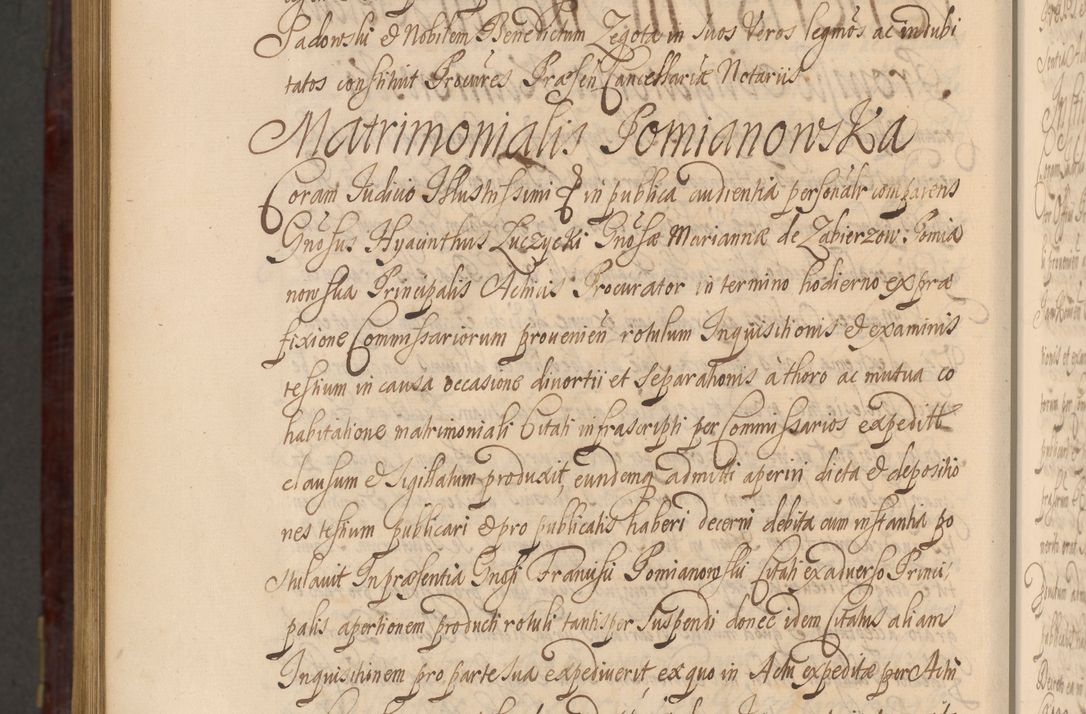 Padowski & Nobilem Benedictum Zegota in suos Veros legmos ac indubi
tatos constituit Procures Præsen Cancellariæ Notariis
Matrimonialis Pomianowska
Coram Iudicio Illustrissimi & in publica audientia personalr comparens
Gnosus Hyacinthus Łuczycki Gnosæ Mariannæ de Zabierzow Pomia
nowska Principalis Actricis Procurator in termino hodierno ex præ
fixione Commissariorum provenien rotulum Inquisitionis & examinis
testium in causa occasione divortii et separationis à thoro ac mutua co
habitatione matrimoniali Citati infrascripti per Commissarios expeditt
clausum & Sigillatum produxit, eundemq admitti aperiri dicta & depositio
nes testium publicari & pro publicatis haberi decerni debita cum instantia po
stulavit In præsentia Gnosi Francisii Pomianowski Citati ex adverso Princi,
palis apertionem producti rotuli tantisper suspendi donec idem Citatus aliam
Inquisitionem pro parte sua expediverit, ex quo in Actu expeditæ per Actri